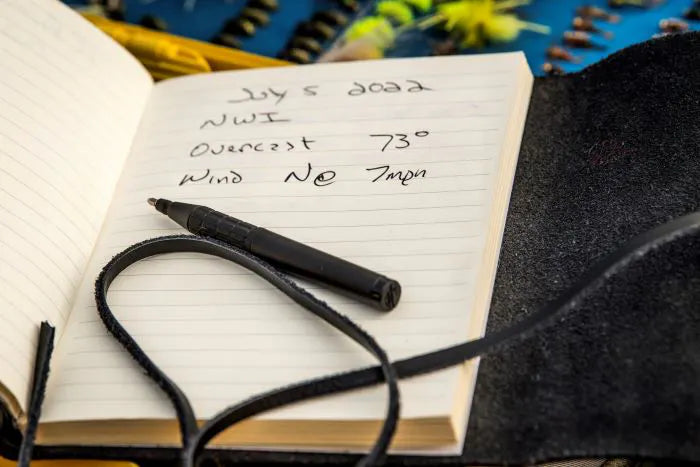 July 5 2022
NWI
Overcast 73°
Wind N@ 7mph